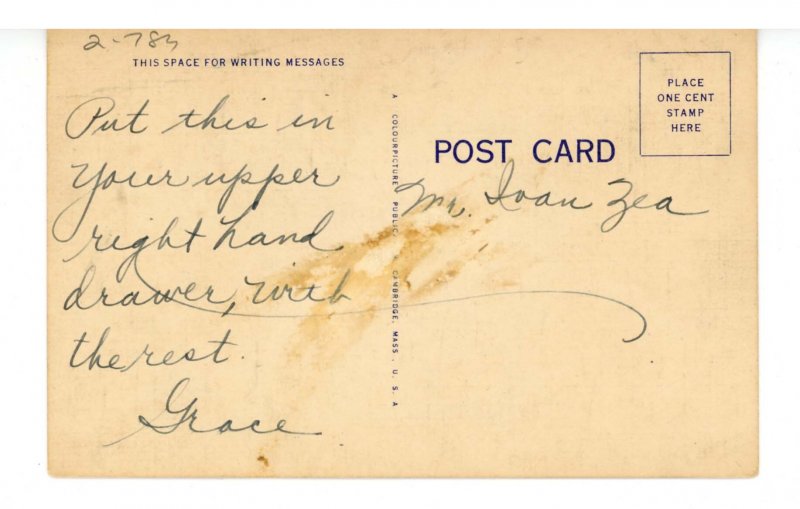 2-783
THIS SPACE FOR WRITING MESSAGES
Put this in
your upper
right hand
drawer, with
the rest.
Grace
A COLOURPICTURE PUBLIC. CAMBRIDGE, MASS., U.S.A
POST CARD
Mr. Ivan Zea
PLACE
ONE CENT
STAMP
HERE